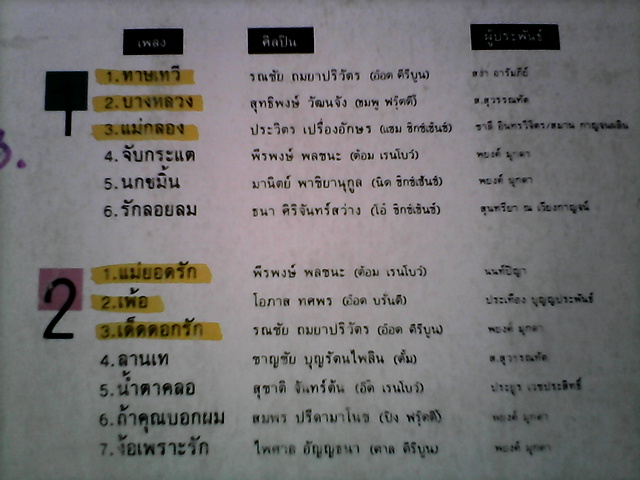 เพลง ศิลปิน ผู้ประพันธ์
1
1. ทาษเทวี รณชัย ถมยาปริวัตร (อ๊อด คีรีบูน) สง่า อารัมภีย์
2. บางหลวง สุทธิพงษ์ วัฒนจัง (ชมพู ฟรุ๊ตตี้) ส.สุวรรณทัต
3. แม่กลอง ประวิตร เปรื่องอักษร (แซม ซิกซ์เซ้นซ์) ชาลี อินทรวิจิตร/สมาน กาญจนผลิน
4. จับกระแต พีรพงษ์ พลชนะ (ต้อม เรนโบว์) พยงค์ มุกดา
5. นกขมิ้น มานิตย์ พาชิยานุกูล (นิด ซิกซ์เซ้นซ์) พยงค์ มุกดา
6. รักลอยลม ธนา ศิริจันทร์สว่าง (โอ๋ ซิกซ์เซ้นซ์) สุนทรียา ณ เวียงกาญจน์
2
1. แม่ยอดรัก พีรพงษ์ พลชนะ (ต้อม เรนโบว์) นนท์ปัญญา
2. เพ้อ โอภาส ทศพร (อ๊อด บรั่นดี) ประเทือง บุญญประพันธ์
3. เด็ดดอกรัก รณชัย ถมยาปริวัตร (อ๊อด คีรีบูน) พยงค์ มุกดา
4. ลานเท ชาญชัย บุญรัตนไพลิน (ตั้ม) ส.สุวรรณทัต
5. น้ำตาคลอ สุชาติ จันทร์ต้น (อี๊ด เรนโบว์) ประยูร เวชประสิทธิ์
6. ถ้าคุณบอกผม สมพร ปรีดามาโนช (ปิง ฟรุ๊ตตี้) พยงค์ มุกดา
7. ง้อเพราะรัก ไพศาล อัญญธนา (ตาล คีรีบูน) พยงค์ มุกดา